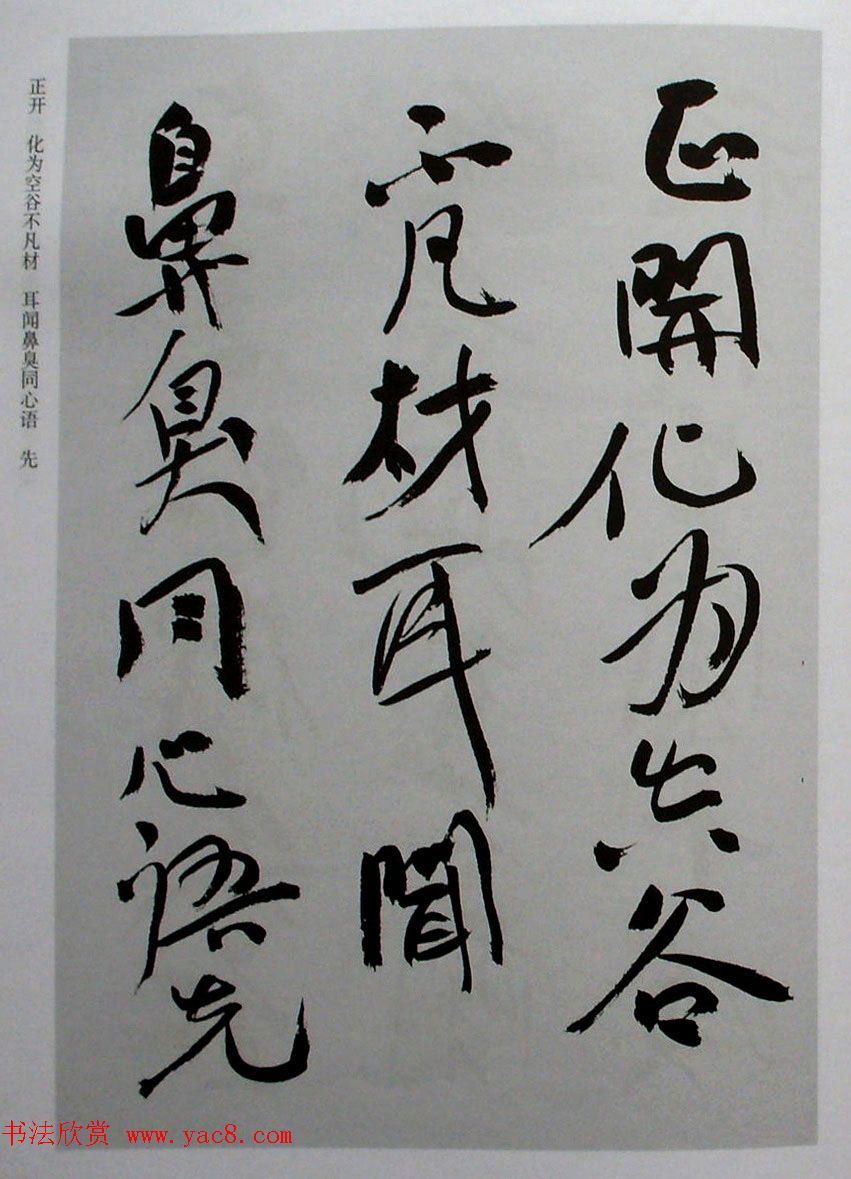 正開化为空谷
不凡材耳聞
鼻臭同心語先
正开 化为空谷不凡材 耳闻鼻臭同心语 先
书法欣赏 www.yac8.com